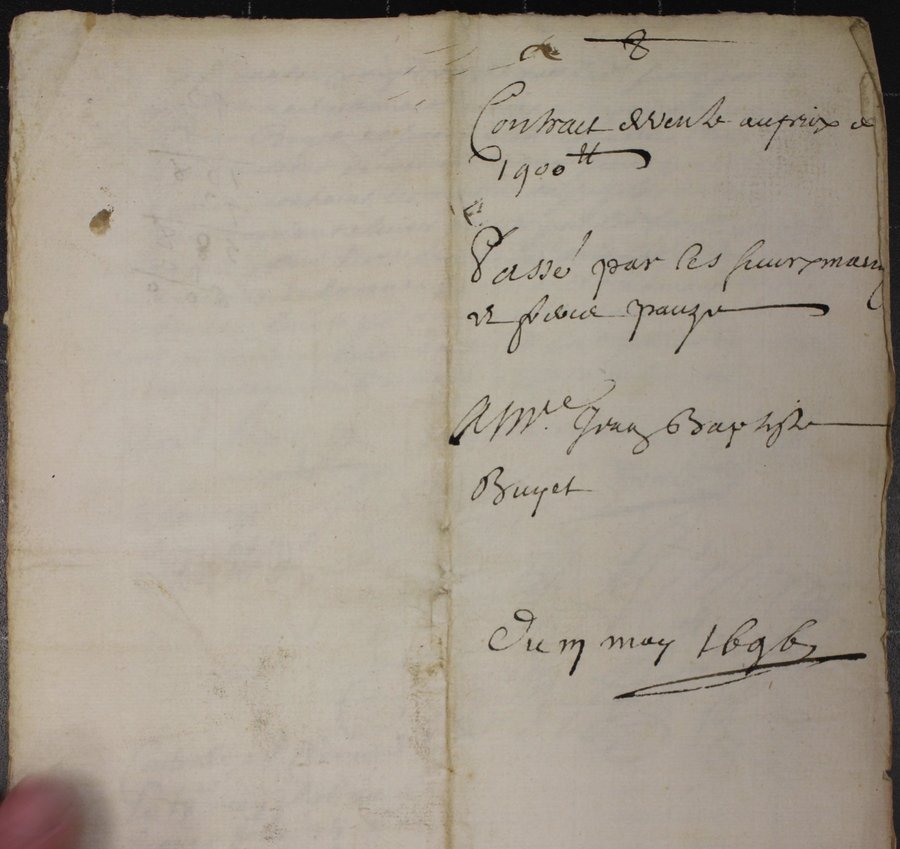 8
Contract de vente au prix de
1900 ₶
Passé par les sieurs
et pauze
A Mre Jean Baptiste
Buyet
Du may 1696